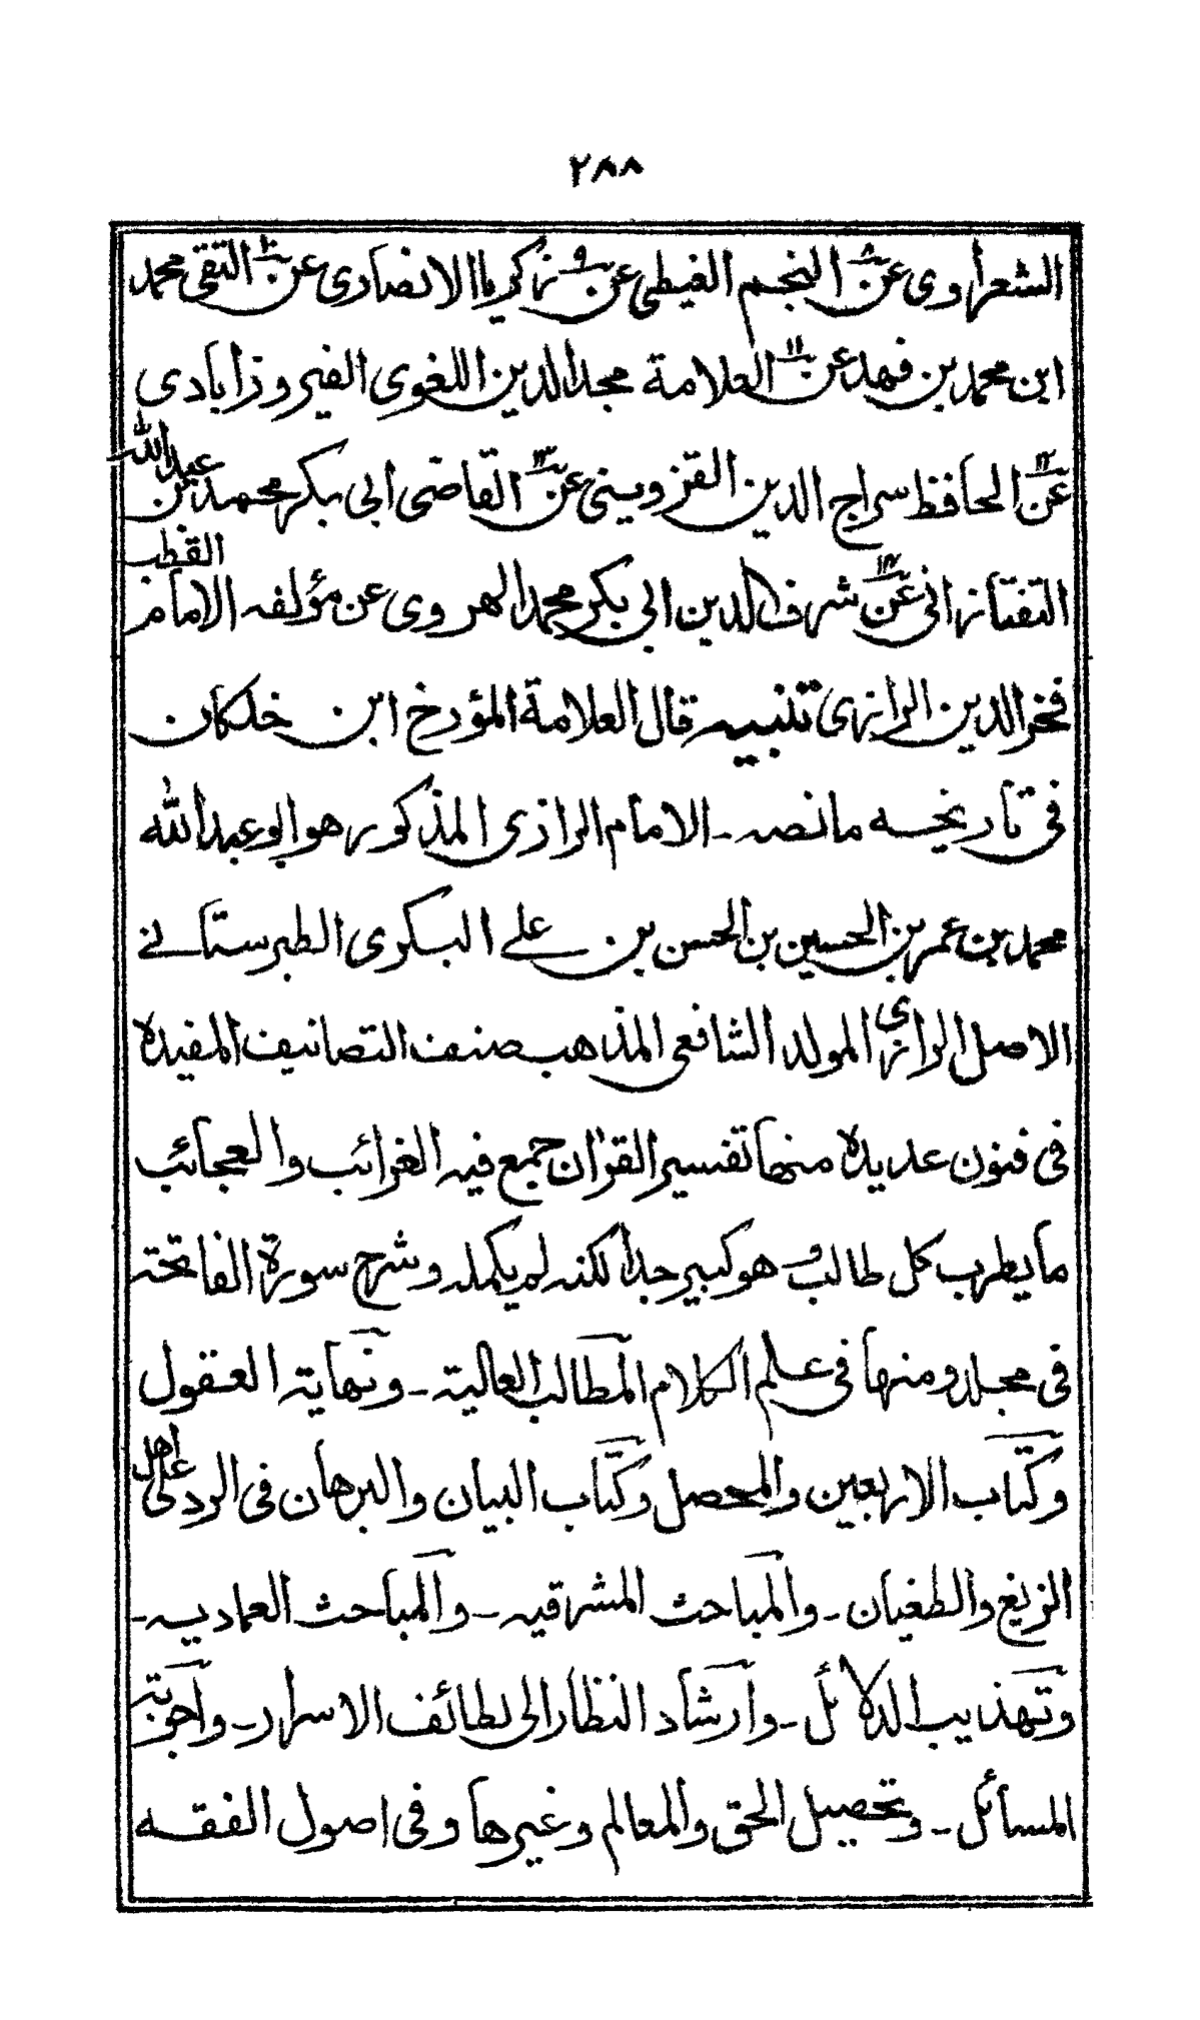 ٢٨٨
الشعراوى عن٨ النجم الغيطى عن٩ زكريا الانصارى عن١٠ التقى محمد
ابن محمد بن فهد عن١١ العلامة مجد الدين اللغوى الفيروزابادى
عن١٢ الحافظ سراج الدين القزوينى عن١٣ القاضى ابى بكر محمد بن عبد الله
التفتازانى عن١٤ شرف الدين ابى بكر محمد الهروى عن مؤلفه الامام القطب
فخر الدين الرازى تنبيه قال العلامة المؤرخ ابن خلكان
فى تاريخه ما نصه - الامام الرازى المذكور هو ابو عبد الله
محمد بن عمر بن الحسين بن الحسن بن على البكرى الطبرستانے
الاصل الرازى المولد الشافعى المذهب صنف التصانيف المفيدة
فى فنون عديدة منها تفسير القران جمع فيه الغرائب والعجائب
ما يطرب كل طالب و هو كبير جدا لكنه لم يكمله وشرح سورة الفاتحة
فى مجلد ومنها فى علم الكلام المطالب العالية - ونهاية العقول
وكتاب الاربعين والمحصل وكتاب البيان والبرهان فى الرد على اهل
الزيغ والطغيان - والمباحث المشرقيه - والمباحث العماديه -
وتهذيب الدلائل - وارشاد النظار الى لطائف الاسرار - واجوبة
المسائل - وتحصيل الحق والمعالم وغيرها وفى اصول الفقه